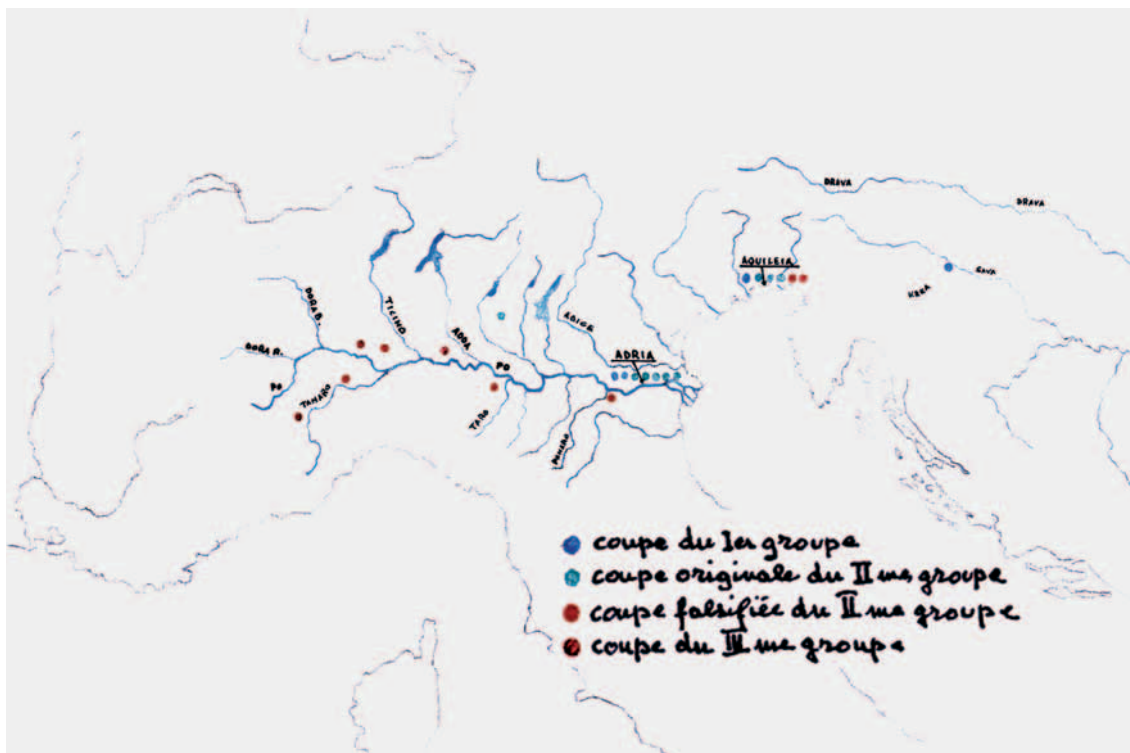 DRAVA
DRAVA
AQUILEIA
SAVA
KRKA
DORA B.
TICINO
ADDA
ADIGE
DORA R.
PO
ADRIA
PO
TANARO
TARO
PANARO
coupe du Ier groupe
coupe originale du II me groupe
coupe falsifiée du II me groupe
coupe du III me groupe